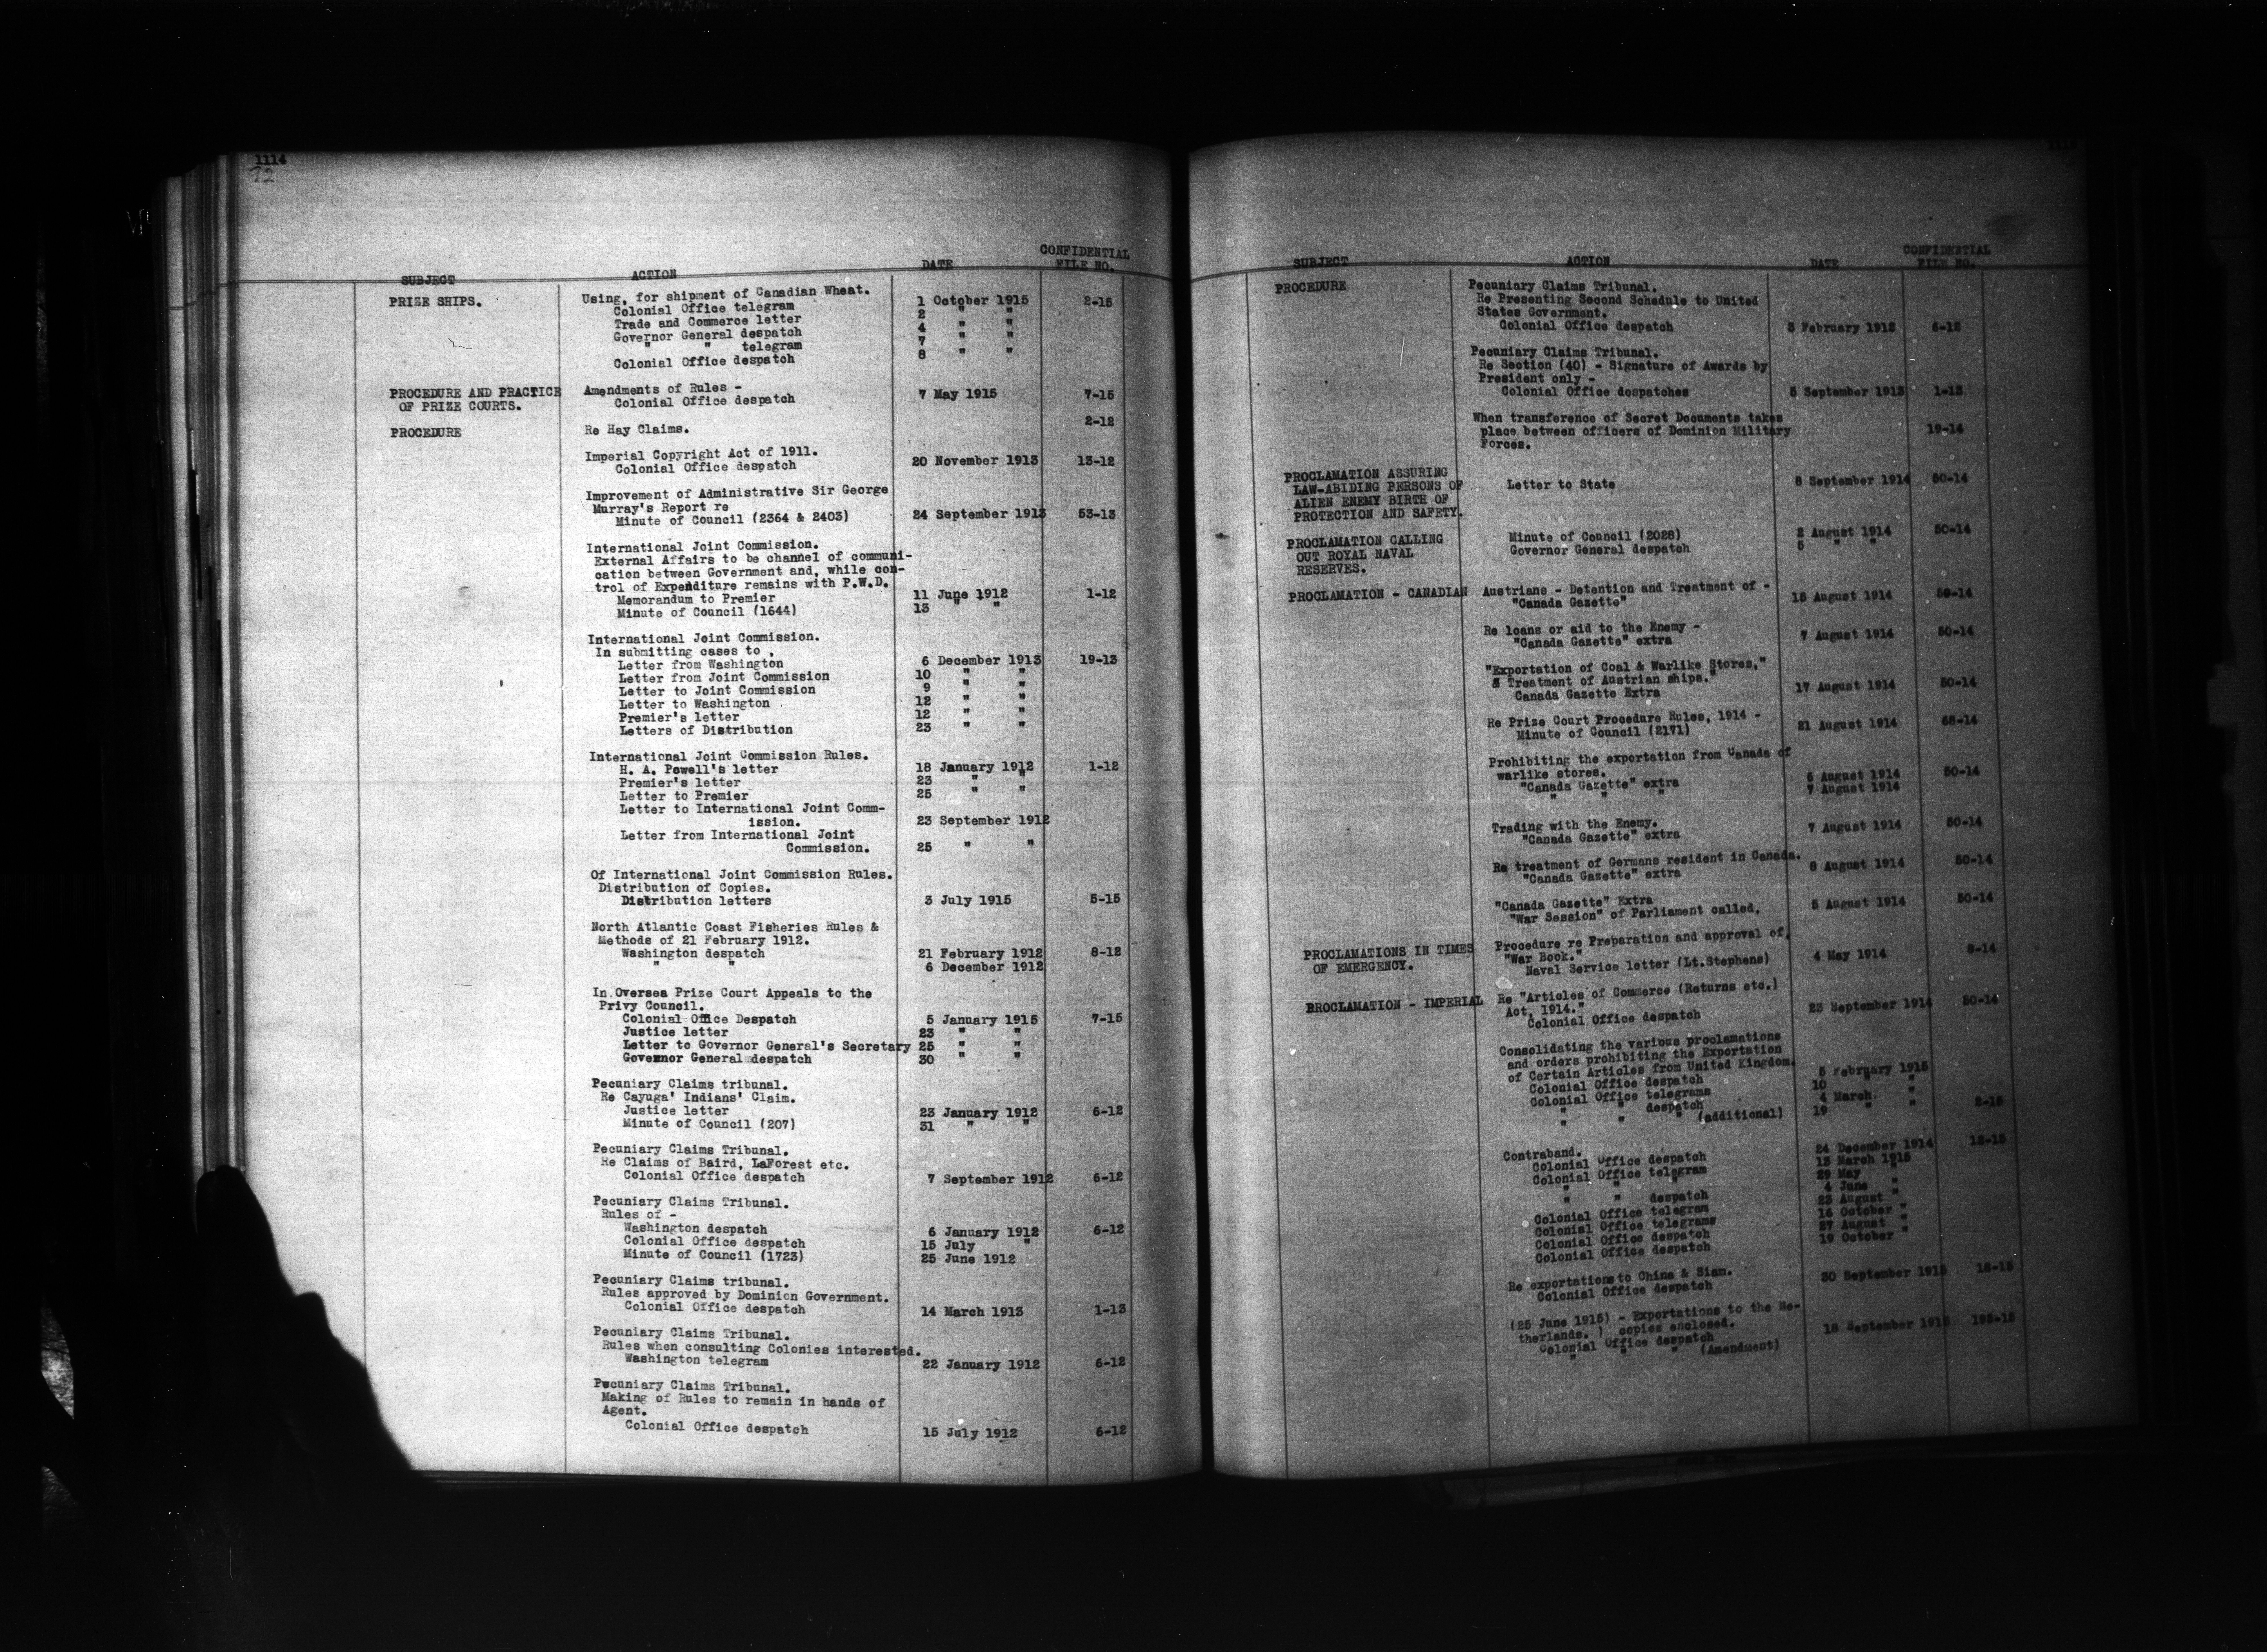 1114
72
SUBJECT ACTION DATE CONFIDENTIAL FILE NO.
PRIZE SHIPS. Using, for shipment of Canadian Wheat.
Colonial Office telegram 1 October 1915 2-15
Trade and Commerce letter 2 " "
Governor General despatch 4 " "
" " telegram 7 " "
Colonial Office despatch 8 " "
PROCEDURE AND PRACTICE OF PRIZE COURTS. Amendments of Rules -
Colonial Office despatch 7 May 1915 7-15
PROCEDURE Re Hay Claims. 2-12
Imperial Copyright Act of 1911.
Colonial Office despatch 20 November 1913 13-12
Improvement of Administrative Sir George
Murray's Report re
Minute of Council (2364 & 2403) 24 September 1913 53-13
International Joint Commission.
External Affairs to be channel of communi-
cation between Government and, while con-
trol of Expenditure remains with P.W.D.
Memorandum to Premier 11 June 1912 1-12
Minute of Council (1644) 13 " "
International Joint Commission.
In submitting cases to ,
Letter from Washington 6 December 1913 19-13
Letter from Joint Commission 10 " "
Letter to Joint Commission 9 " "
Letter to Washington 12 " "
Premier's letter 12 " "
Letters of Distribution 23 " "
International Joint Commission Rules.
H. A. Powell's letter 18 January 1912 1-12
Premier's letter 23 " "
Letter to Premier 25 " "
Letter to International Joint Comm-
ission. 23 September 1912
Letter from International Joint
Commission. 25 " "
Of International Joint Commission Rules.
Distribution of Copies.
Distribution letters 3 July 1915 5-15
North Atlantic Coast Fisheries Rules &
Methods of 21 February 1912.
Washington despatch 21 February 1912 8-12
" " 6 December 1912
In Oversea Prize Court Appeals to the
Privy Council.
Colonial Office Despatch 5 January 1915 7-15
Justice letter 23 " "
Letter to Governor General's Secretary 25 " "
Governor General despatch 30 " "
Pecuniary Claims tribunal.
Re Cayuga' Indians' Claim.
Justice letter 23 January 1912 6-12
Minute of Council (207) 31 " "
Pecuniary Claims Tribunal.
Re Claims of Baird, LaForest etc.
Colonial Office despatch 7 September 1912 6-12
Pecuniary Claims Tribunal.
Rules of -
Washington despatch 6 January 1912 6-12
Colonial Office despatch 15 July "
Minute of Council (1723) 25 June 1912
Pecuniary Claims tribunal.
Rules approved by Dominion Government.
Colonial Office despatch 14 March 1913 1-13
Pecuniary Claims Tribunal.
Rules when consulting Colonies interested.
Washington telegram 22 January 1912 6-12
Pecuniary Claims Tribunal.
Making of Rules to remain in hands of
Agent.
Colonial Office despatch 15 July 1912 6-12
SUBJECT ACTION DATE CONFIDENTIAL FILE NO.
PROCEDURE Pecuniary Claims Tribunal.
Re Presenting Second Schedule to United
States Government.
Colonial Office despatch 3 February 1912 6-12
Pecuniary Claims Tribunal.
Re Section (40) - Signature of Awards by
President only -
Colonial Office despatches 5 September 1913 1-13
When transference of Secret Documents takes
place between officers of Dominion Military 19-14
Forces.
PROCLAMATION ASSURING
LAW-ABIDING PERSONS OF Letter to State 8 September 1914 50-14
ALIEN ENEMY BIRTH OF
PROTECTION AND SAFETY.
PROCLAMATION CALLING Minute of Council (2028) 2 August 1914 50-14
OUT ROYAL NAVAL Governor General despatch 5 " "
RESERVES.
PROCLAMATION - CANADIAN Austrians - Detention and Treatment of -
"Canada Gazette" 15 August 1914 50-14
Re loans or aid to the Enemy -
"Canada Gazette" extra 7 August 1914 50-14
"Exportation of Coal & Warlike Stores,"
& Treatment of Austrian ships."
Canada Gazette Extra 17 August 1914 50-14
Re Prize Court Procedure Rules, 1914 -
Minute of Council (2171) 21 August 1914 68-14
Prohibiting the exportation from Canada of
warlike stores.
"Canada Gazette" extra 6 August 1914 50-14
" " " 7 August 1914
Trading with the Enemy.
"Canada Gazette" extra 7 August 1914 50-14
Re treatment of Germans resident in Canada.
"Canada Gazette" extra 8 August 1914 50-14
"Canada Gazette" Extra
"War Session" of Parliament called, 5 August 1914 50-14
PROCLAMATIONS IN TIMES Procedure re Preparation and approval of,
OF EMERGENCY. "War Book."
Naval Service letter (Lt.Stephens) 4 May 1914 8-14
PROCLAMATION - IMPERIAL Re "Articles of Commerce (Returns etc.)
Act, 1914."
Colonial Office despatch 23 September 1914 50-14
Consolidating the various proclamations
and orders prohibiting the Exportation
of Certain Articles from United Kingdom.
Colonial Office despatch 5 February 1915
Colonial Office telegrams 10 " "
" " despatch 4 March "
" " " (additional) 19 " " 2-15
Contraband.
Colonial Office despatch 24 December 1914 12-15
Colonial Office telegram 13 March 1915
" " " 29 May "
" " despatch 4 June "
Colonial Office telegram 23 August "
Colonial Office telegrams 16 October "
Colonial Office despatch 27 August "
Colonial Office despatch 19 October "
Re exportations to China & Siam.
Colonial Office despatch 30 September 1915 18-15
(25 June 1915) - Exportations to the Ne-
therlands. ) copies enclosed.
Colonial Office despatch 18 September 1915 195-15
" " " (Amendment)